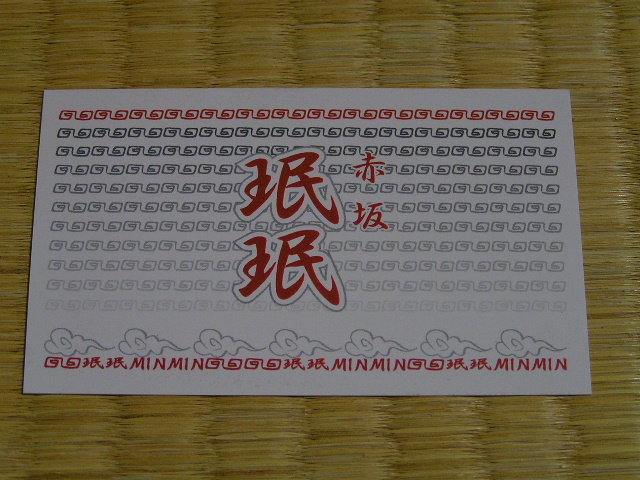 赤坂
珉珉
珉珉MINMIN 珉珉MINMIN 珉珉MINMIN